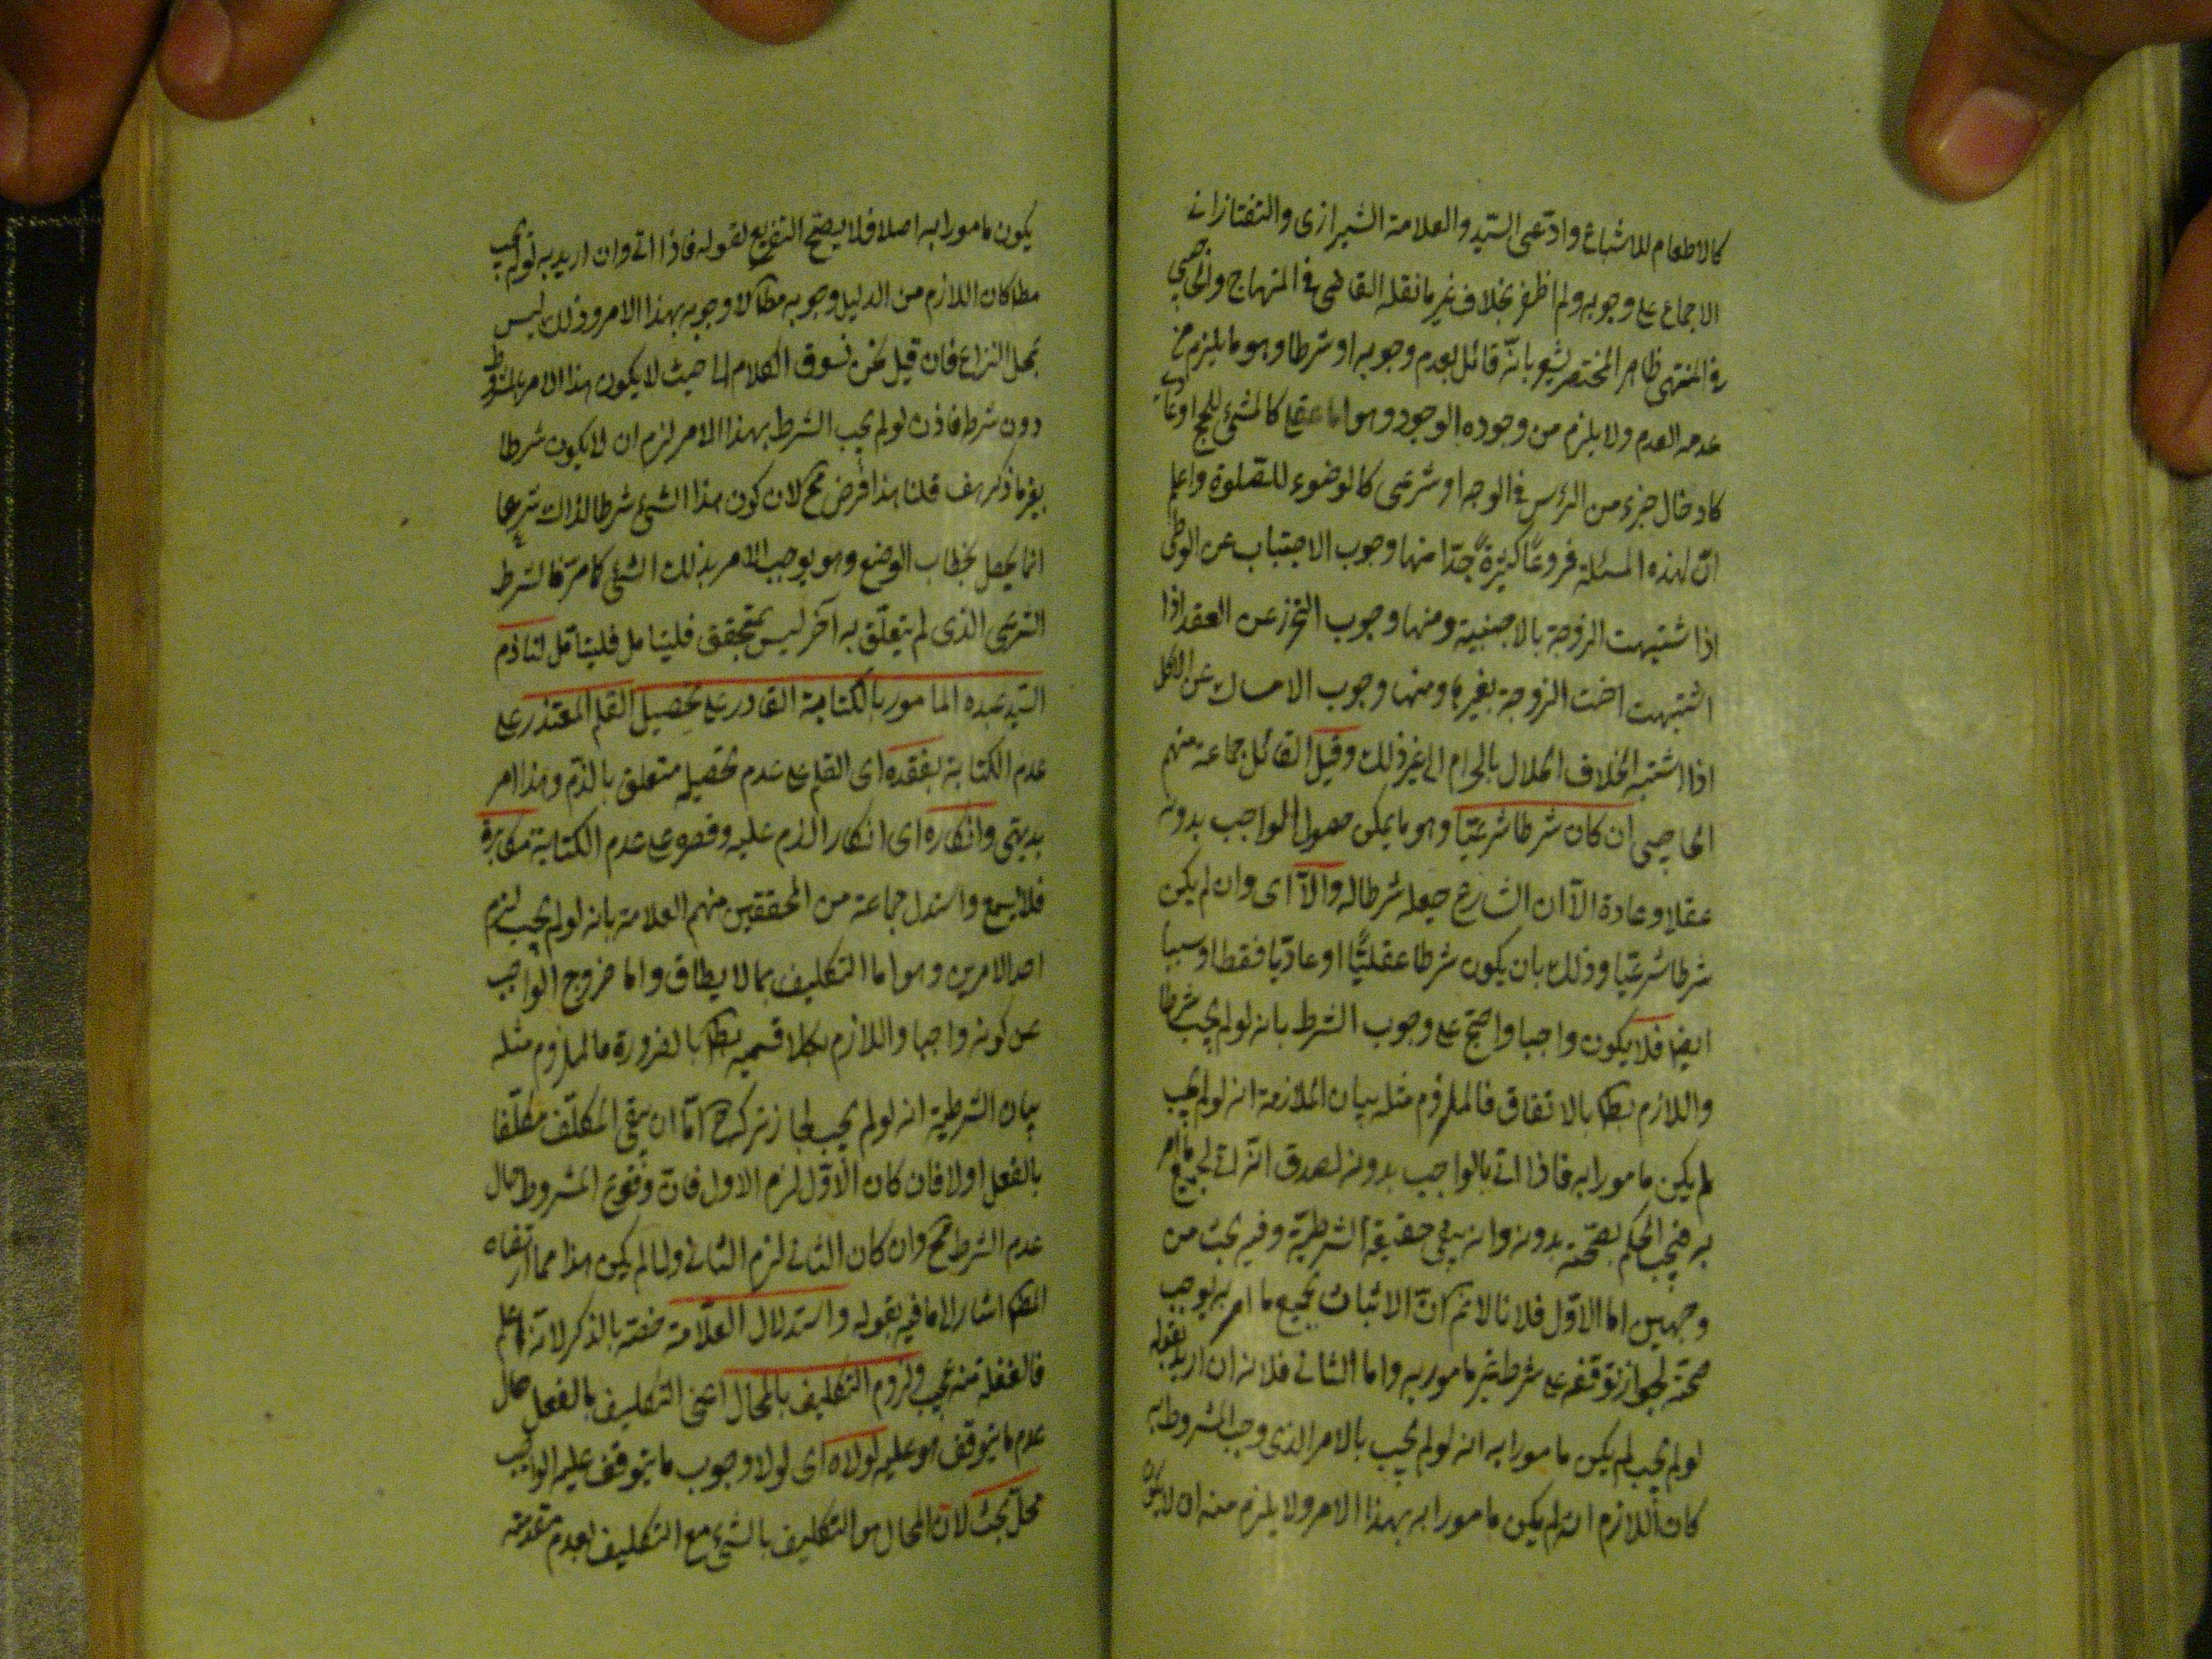 كالاطعام للاشباع وادّعى السّيد والعلامة الشيرازى والتفتازانى
الاجماع على وجوبه ولم اظفر بخلاف غير ما نقله القاضى فى المنهاج والحاجبى
فى المنتهى ظاهر المختصر يشعر بانّه قائل بعدم وجوبه او شرطا وهو ما يلزم من
عدمه العدم ولا يلزم من وجوده الوجود وهو اما عقلى كالمشى للحج او عادى
كادخال جزء من الرأس فى الوجه او شرعى كالوضوء للصّلوة واعلم
انّ لهذه المسئلة فروعًا كثيرةً جدّا منها وجوب الاجتناب عن الوطى
اذا اشتبهت الزوجة بالاجنبية ومنها وجوب التحرز عن العقد اذا
اشتبهت اخت الزوجة بغيرها ومنها وجوب الامساك عن الاكل
اذا اشتبه الحلال بالحرام الى غير ذلك وقيل القائل جماعة منهم
الحاجبى ان كان شرطا شرعيّا وهو ما يمكن حصول الواجب بدونه
عقلا وعادة الّا ان الشارع جعله شرطا له والّا اى وان لم يكن
شرطا شرعيّا وذلك بان يكون شرطا عقليًّا او عاديّا فقط او سببا
ايضا فلا يكون واجبا واحتج على وجوب الشرط بانه لو لم يجب شرطا
واللازم بط بالاتفاق فالملزوم مثله بيان الملازمة انه لو لم يجب
لم يكن مامورا به فاذا اتى بالواجب بدونه لصدق انّه اتى بجميع ما امر
به فيجب الحكم بصّحته بدونه وانه ينفى حقيقة الشرطيّة وفيه بحث من
وجهين اما الاوّل فلانا لانم انّ الاتيان بجميع ما امر به يوجب
صحته لجواز توقفه على شرط غير مامور به واما الثانى فلانه ان اريد بقوله
لو لم يجب لم يكن مامورا به انه لو لم يجب بالامر الذى وجب المشروط به
كان اللازم انه لم يكن مامورا به بهذا الامر ولا يلزم منه ان لا يكون
يكون مامورا به اصلا فلا يصّح التفريع لقوله فاذا اتى وان اريد به لو لم يجب
مطا كان اللازم من الدليل وجوبه مطا لا وجوبه بهذا الامر وذلك ليس
بمحل النزاع فان قيل نحن نسوق الكلام الى حيث لا يكون هذا الامر بالمشروط
دون شرط فاذن لو لم يجب الشرط بهذا الامر لزم ان لا يكون شرطا
بغير ما ذكر هف قلنا هذا فرض مح لان كون هذا الشئ شرطا لذاك شرعا
انما يحصل بخطاب الوضع وهو يوجب الامر بذلك الشئ كما مرّ فالشرط
الشرعى الذى لم يتعلّق به آخر ليس بمتحقق فليتامل فليتامّل لنا ذم
السّيد عبده المامور بالكتابة القادر على تحصيل القلم المعتذر على
عدم الكتابة بفقده اى القلم على عدم تحصيله متعلق بالذّم وهذا امر
بديهى وانكاره اى انكار الذم عليه وقصره على عدم الكتابة مكابرة
فلا يسمع واستدل جماعة من المحققين منهم العلامة بانه لو لم يجب لزم
احد الامرين وهو اما التكليف بما لا يطاق واما خروج الواجب
عن كونه واجبا واللازم بكلا قسميه بط بالضرورة فالملزوم مثله
بيان الشرطية انه لو لم يجب لجاز تركه ح امّا ان يبقى المكلّف مكلّفا
بالفعل اولا فان كان الاوّل لزم الاول فانّ وقوع المشروط حال
عدم الشرط مح وان كان الثانى لزم الثانى ولما لم يكن هذا مما ارتضاه
المص اشار الى ما فيه بقوله واستدلال العلّامة خصّته بالذكر لانّه اعلم
فالغفلة منه عجيب ولزوم التكليف بالمحال اعنى التكليف بالفعل حال
عدم ما يتوقف هو عليه لولاه اى لولا وجوب ما يتوقف عليه الواجب
محلّ بحث لانّ المحال هو التكليف بالشئ مع التكليف بعدم مقدمته